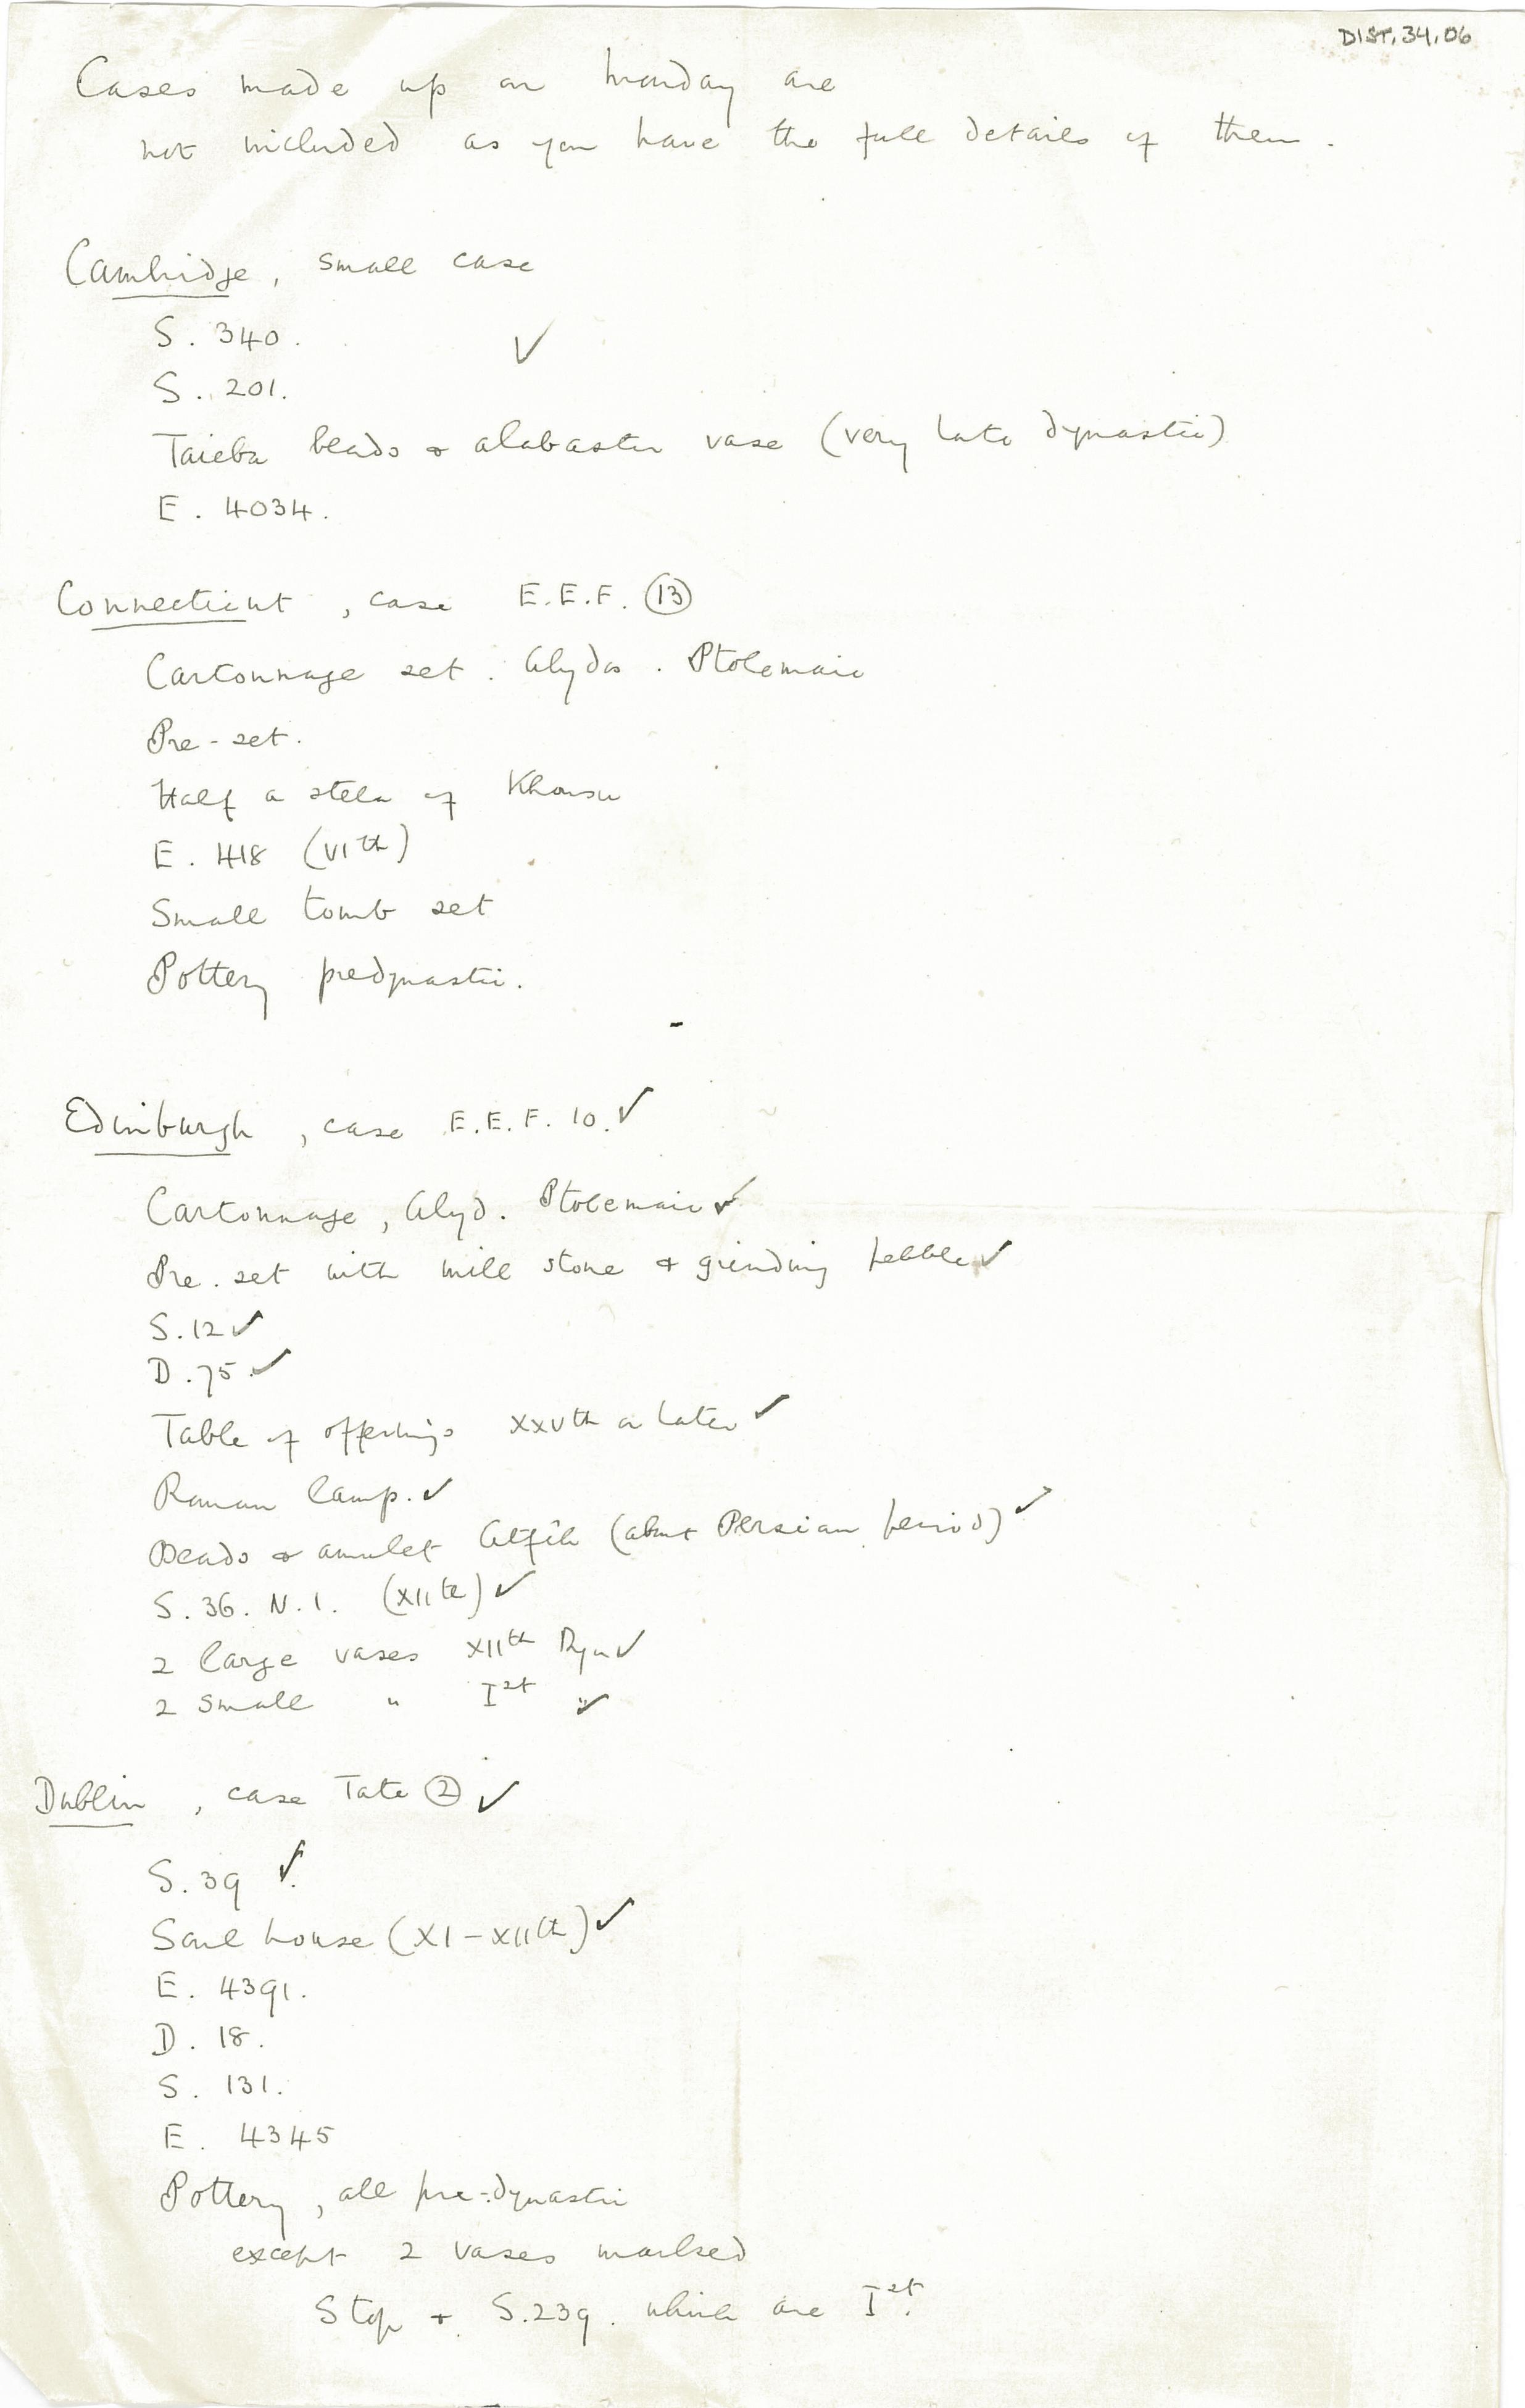 DIST.34.06
Cases made up on Monday are
not included as you have the full details of them.
Cambridge, small case
S. 340. ✓
S. 201.
Taieba beads & alabaster vase (very late dynastic)
E. 4034.
Connecticut, case E.E.F. 13
Cartonnage set. Abydos. Ptolemaic
Pre-set.
Half a stela of Khonsu
E. 418 (VIth)
Small tomb set
Pottery predynastic.
Edinburgh, case E.E.F. 10. ✓
Cartonnage, Abyd. Ptolemaic ✓
Pre. set with mill stone & grinding pebble ✓
S. 12 ✓
D. 75 ✓
Table of offerings XXVth or later ✓
Roman lamp. ✓
Beads & amulet Atfih (about Persian period) ✓
S. 36. N. 1. (XIIth) ✓
2 large vases XIIth Dyn ✓
2 small " Ist " ✓
Dublin, case Tate 2 ✓
S. 39 ✓
Soul house (XI–XIIth) ✓
E. 4391.
D. 18.
S. 131.
E. 4345
Pottery, all pre-dynastic
except 2 vases marked
Stop + S.239. which are Ist.